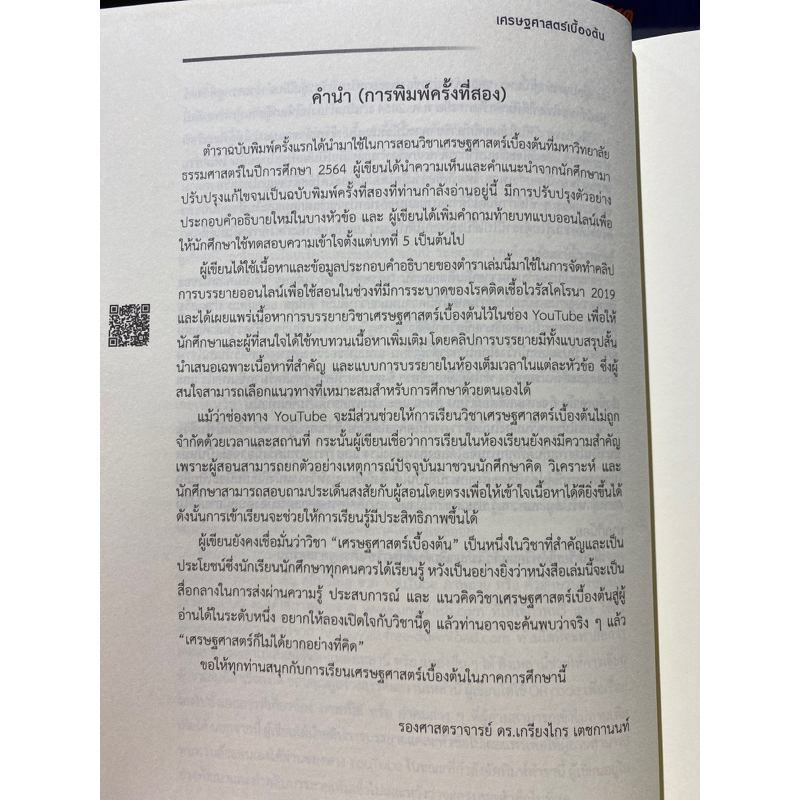 เศรษฐศาสตร์เบื้องต้น
คำนำ (การพิมพ์ครั้งที่สอง)
ตำราฉบับพิมพ์ครั้งแรกได้นำมาใช้ในการสอนวิชาเศรษฐศาสตร์เบื้องต้นที่มหาวิทยาลัย
ธรรมศาสตร์ในปีการศึกษา 2564 ผู้เขียนได้นำความเห็นและคำแนะนำจากนักศึกษามา
ปรับปรุงแก้ไขจนเป็นฉบับพิมพ์ครั้งที่สองที่ท่านกำลังอ่านอยู่นี้ มีการปรับปรุงตัวอย่าง
ประกอบคำอธิบายใหม่ในบางหัวข้อ และ ผู้เขียนได้เพิ่มคำถามท้ายบทแบบออนไลน์เพื่อ
ให้นักศึกษาใช้ทดสอบความเข้าใจตั้งแต่บทที่ 5 เป็นต้นไป
ผู้เขียนได้ใช้เนื้อหาและข้อมูลประกอบคำอธิบายของตำราเล่มนี้มาใช้ในการจัดทำคลิป
การบรรยายออนไลน์เพื่อใช้สอนในช่วงที่มีการระบาดของโรคติดเชื้อไวรัสโคโรนา 2019
และได้เผยแพร่เนื้อหาการบรรยายวิชาเศรษฐศาสตร์เบื้องต้นไว้ในช่อง YouTube เพื่อให้
นักศึกษาและผู้ที่สนใจได้ใช้ทบทวนเนื้อหาเพิ่มเติม โดยคลิปการบรรยายมีทั้งแบบสรุปสั้น
นำเสนอเฉพาะเนื้อหาที่สำคัญ และแบบการบรรยายในห้องเต็มเวลาในแต่ละหัวข้อ ซึ่งผู้
สนใจสามารถเลือกแนวทางที่เหมาะสมสำหรับการศึกษาด้วยตนเองได้
แม้ว่าช่องทาง YouTube จะมีส่วนช่วยให้การเรียนวิชาเศรษฐศาสตร์เบื้องต้นไม่ถูก
จำกัดด้วยเวลาและสถานที่ กระนั้นผู้เขียนเชื่อว่าการเรียนในห้องเรียนยังคงมีความสำคัญ
เพราะผู้สอนสามารถยกตัวอย่างเหตุการณ์ปัจจุบันมาชวนนักศึกษาคิด วิเคราะห์ และ
นักศึกษาสามารถสอบถามประเด็นสงสัยกับผู้สอนโดยตรงเพื่อให้เข้าใจเนื้อหาได้ดียิ่งขึ้นได้
ดังนั้นการเข้าเรียนจะช่วยให้การเรียนรู้มีประสิทธิภาพขึ้นได้
ผู้เขียนยังคงเชื่อมั่นว่าวิชา “เศรษฐศาสตร์เบื้องต้น” เป็นหนึ่งในวิชาที่สำคัญและเป็น
ประโยชน์ซึ่งนักเรียนนักศึกษาทุกคนควรได้เรียนรู้ หวังเป็นอย่างยิ่งว่าหนังสือเล่มนี้จะเป็น
สื่อกลางในการส่งผ่านความรู้ ประสบการณ์ และ แนวคิดวิชาเศรษฐศาสตร์เบื้องต้นสู่ผู้
อ่านได้ในระดับหนึ่ง อยากให้ลองเปิดใจกับวิชานี้ดู แล้วท่านอาจจะค้นพบว่าจริง ๆ แล้ว
“เศรษฐศาสตร์ก็ไม่ได้ยากอย่างที่คิด”
ขอให้ทุกท่านสนุกกับการเรียนเศรษฐศาสตร์เบื้องต้นในภาคการศึกษานี้
รองศาสตราจารย์ ดร.เกรียงไกร เตชกานนท์